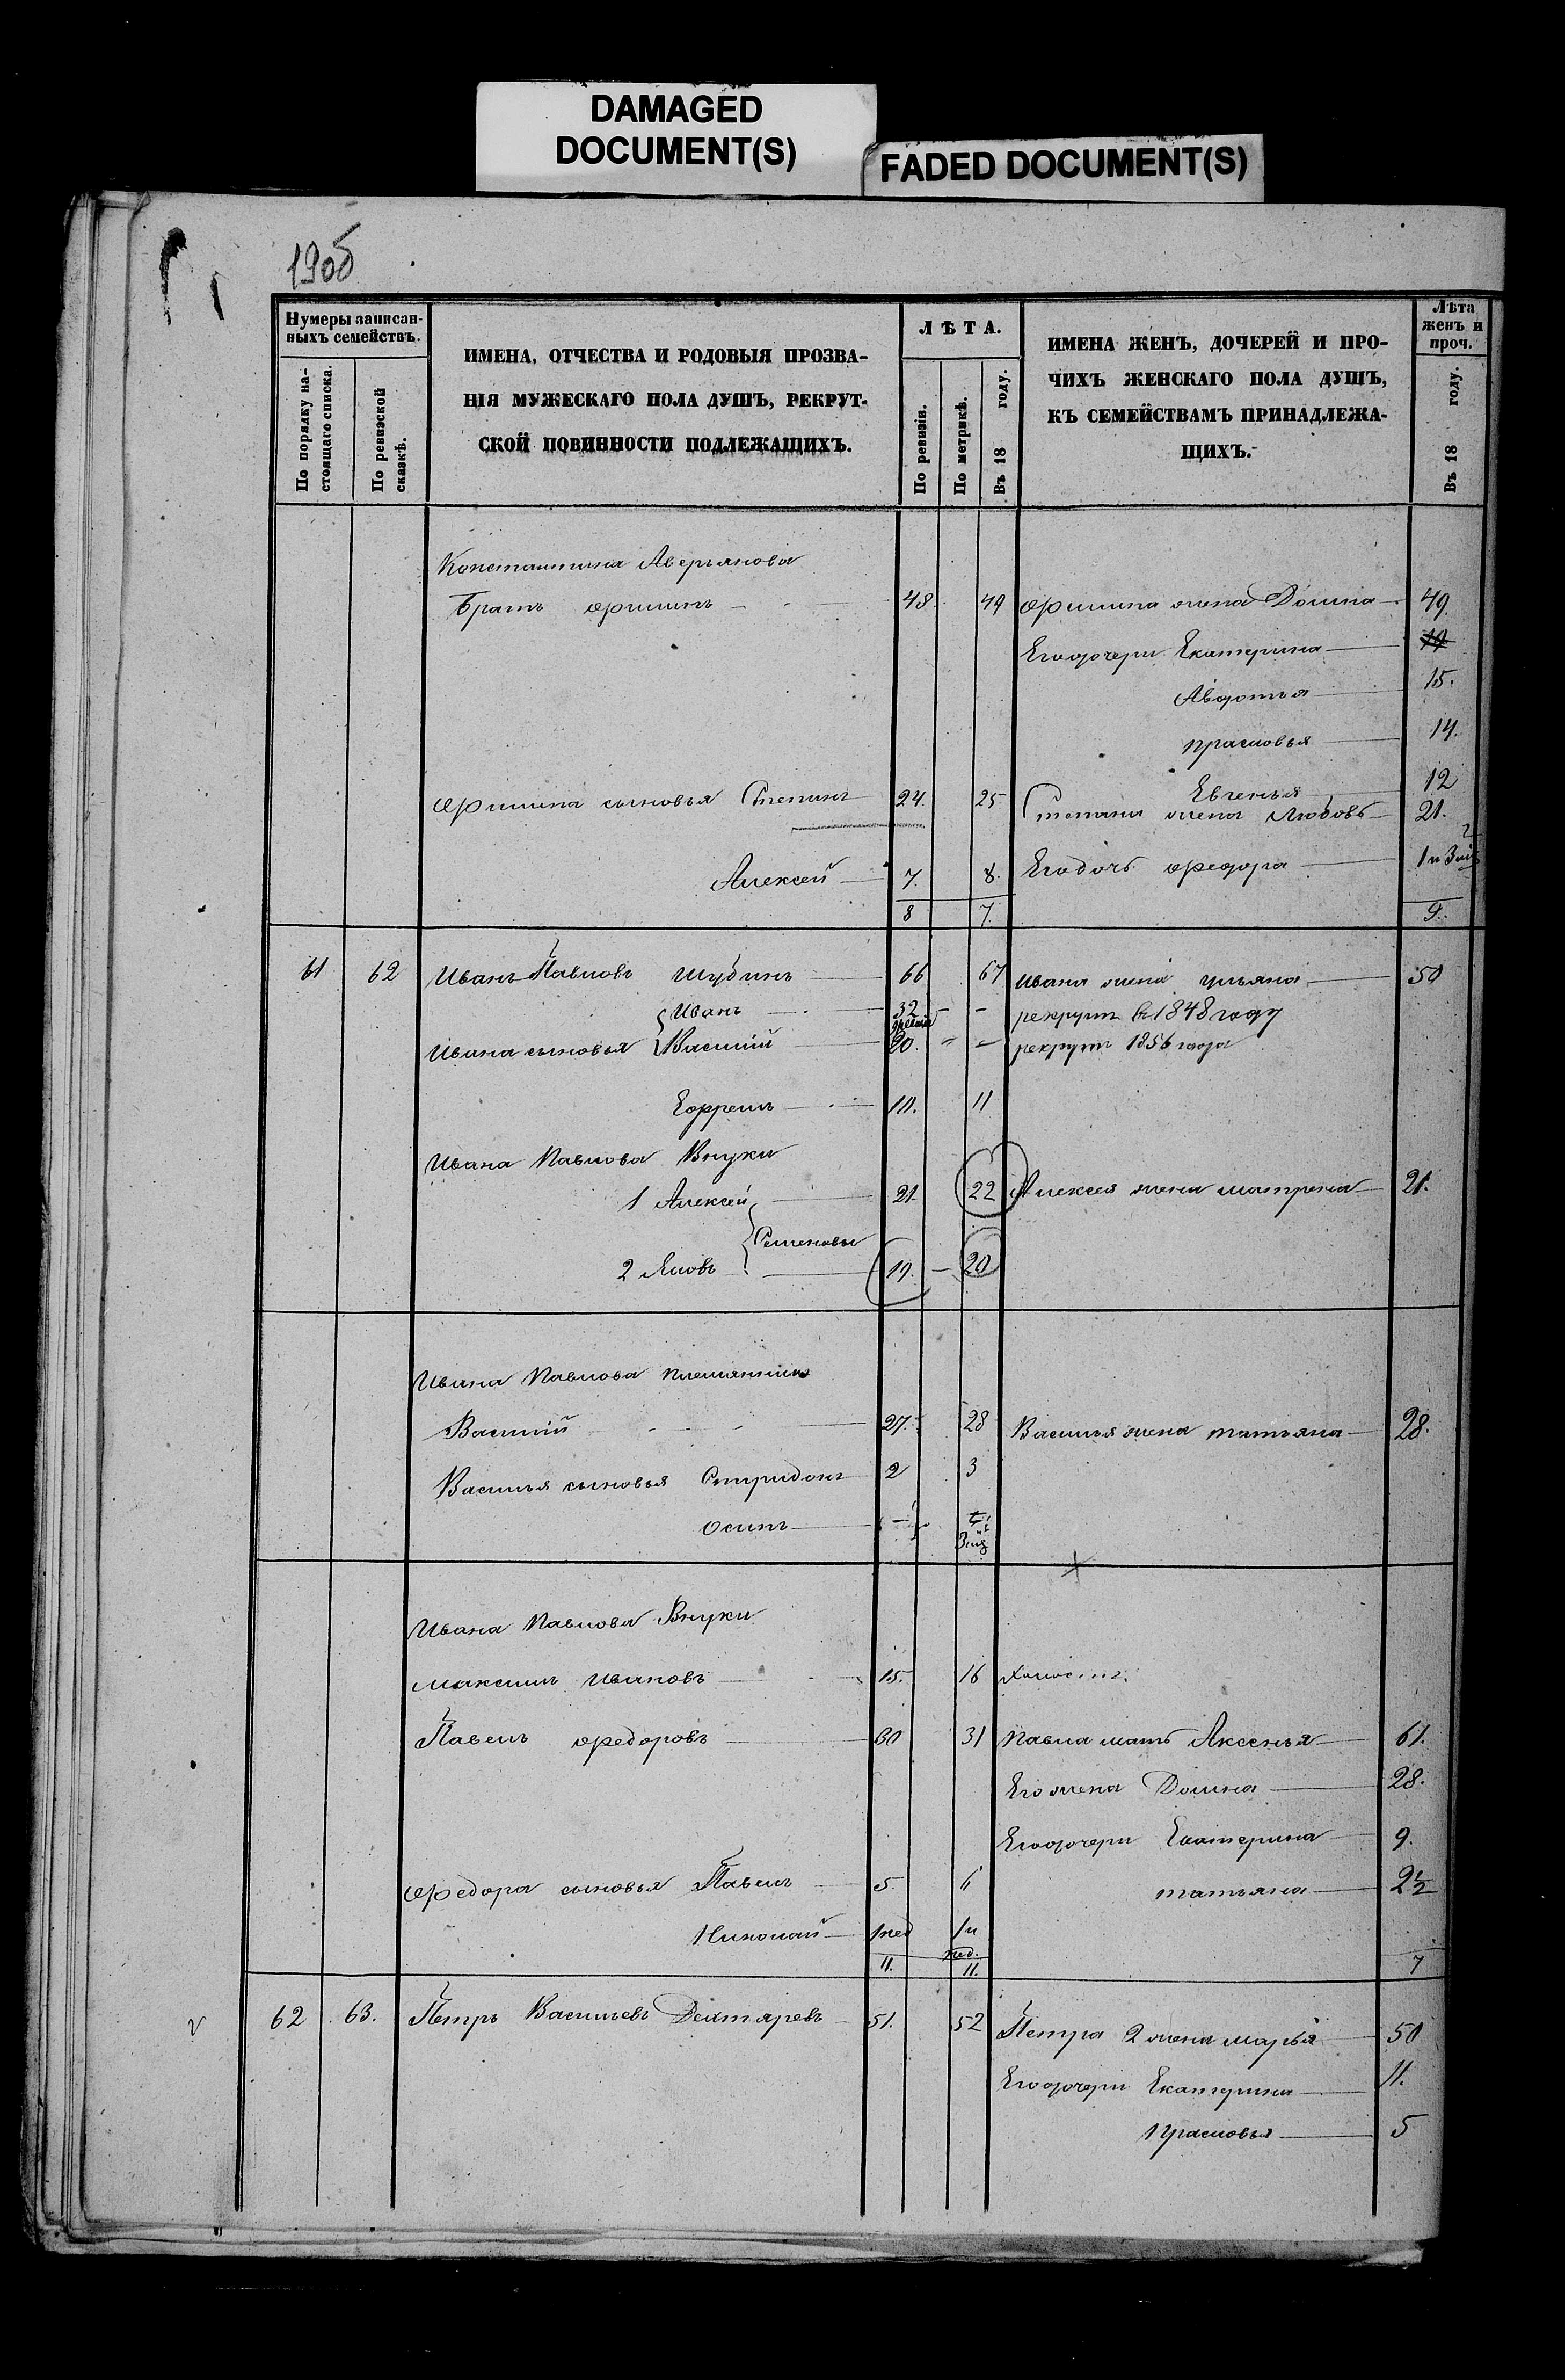 DAMAGED
DOCUMENT(S)
FADED DOCUMENT(S)
190б
Нумеры записан-
ныхъ семействъ.
По порядку на-
стоящаго списка.
По ревизской
сказкѣ.
ИМЕНА, ОТЧЕСТВА И РОДОВЫЯ ПРОЗВА-
НІЯ МУЖЕСКАГО ПОЛА ДУШЪ, РЕКРУТ-
СКОЙ ПОВИННОСТИ ПОДЛЕЖАЩИХЪ.
ЛѢТА.
По ревизіи.
По метрикѣ.
Въ 18 году.
ИМЕНА ЖЕНЪ, ДОЧЕРЕЙ И ПРО-
ЧИХЪ ЖЕНСКАГО ПОЛА ДУШЪ,
КЪ СЕМЕЙСТВАМЪ ПРИНАДЛЕЖА-
ЩИХЪ.
Лѣта
женъ и
проч.
Въ 18 году.
Константина Аверьянова
Братъ Филипъ 48. 49 Филипа жена Домна 49.
Его дочери Екатерина 19
Авдотья 15.
Прасковья 14.
Евгенья 12
Филипа сыновья Степанъ 24. 25 Степана жена Любовь 21.
Алексей 7. 8. Его дочь Федора 1 и 3
8 7. 9.
61 62 Иванъ Павловъ Шубинъ 66 67 Ивана жена Ульяна 50
Иванъ 32 - - рекрутъ в 1848 году
Ивана сыновья Василий 20. " - рекрутъ 1856 года
Ефремъ 10. 11
Ивана Павлова Внуки
1 Алексей 21. 22 Алексея жена Матрена 21.
Семеновы
2 Яковъ 19. - 20
Ивана Павлова племянникъ
Василий 27. 28 Василья жена Татьяна 28.
Василья сыновья Спиридонъ 2 3
Осипъ
Ивана Павлова Внуки
Максимъ Ивановъ 15. 16 Холостъ.
Павелъ Федоровъ 30 31 Павла мать Аксенья 61.
Его жена Домна 28.
Его дочери Екатерина 9.
Федора сыновья Павелъ 5. 6 Татьяна 2 1/2
Николай 1 нед 1 и
нед.
11. 11. 7
62 63. Петръ Васильевъ Дехтяревъ 51. 52 Петра 2 жена Марья 50
Его дочери Екатерина 11.
Прасковья 5